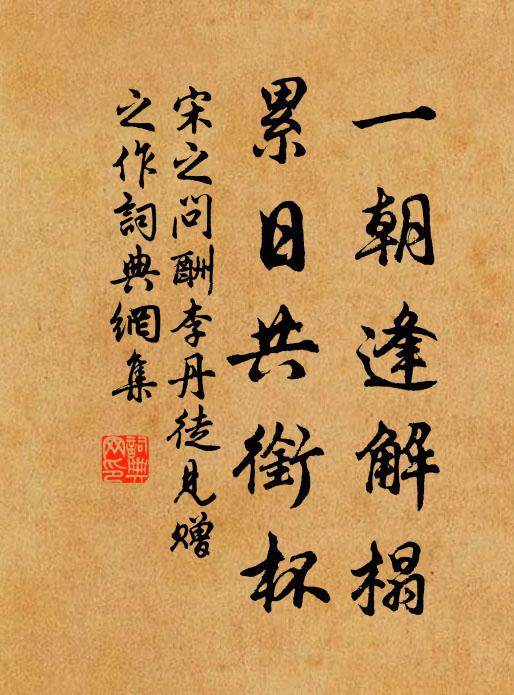 一朝逢解榻
累日共銜杯
宋之问酬李丹徒見赠
之作詞典網集
詞典
网印